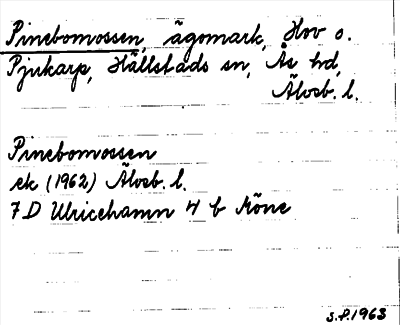 Pinebomossen, ägomark, Hov o.
Pjukarp, Hällstads sn, Ås hd,
Älvsb. l.
Pinebomossen
ek (1962) Älvsb. l.
7 D Ulricehamn 4 b Köne
S.P. 1963